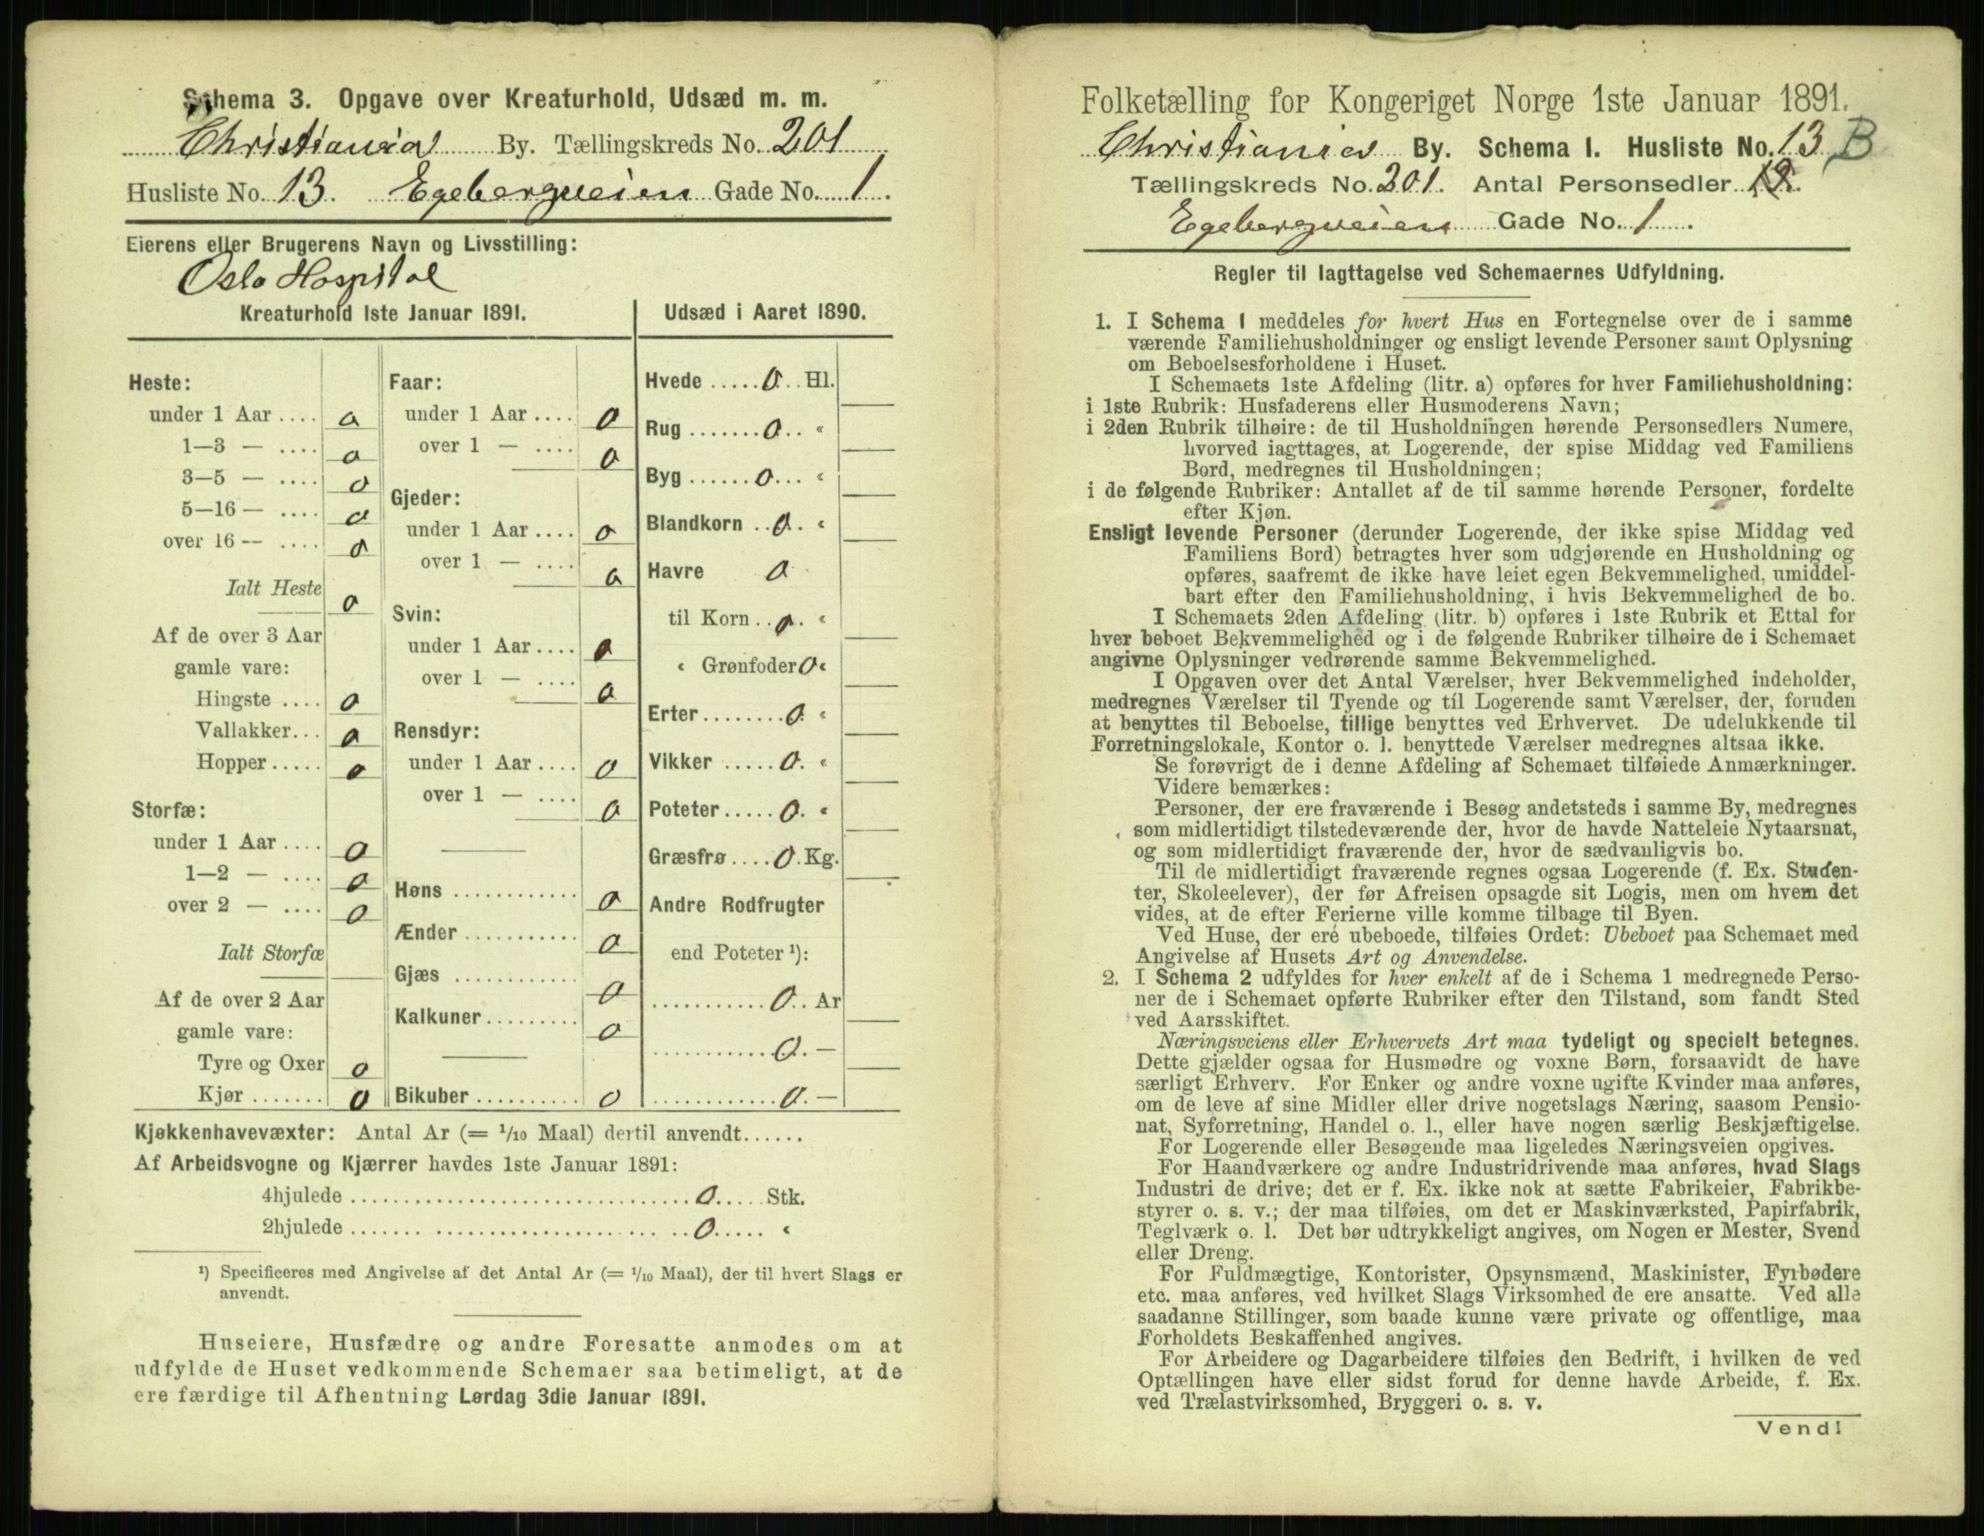 Schema 3. Opgave over Kreaturhold, Udsæd m. m.
Christiania By. Tællingskreds No. 201
Husliste No. 13. Egebergveien Gade No. 1.
Eierens eller Brugerens Navn og Livsstilling:
Oslo Hospital
Kreaturhold 1ste Januar 1891.
Heste:
under 1 Aar .... 0
1—3 — .... 0
3—5 — .... 0
5—16 — .... 0
over 16 — .... 0
Ialt Heste 0
Af de over 3 Aar
gamle vare:
Hingste .... 0
Vallakker... 0
Hopper ..... 0
Storfæ:
under 1 Aar .... 0
1—2 — .... 0
over 2 — .... 0
Ialt Storfæ
Af de over 2 Aar
gamle vare:
Tyre og Oxer 0
Kjør ....... 0
Faar:
under 1 Aar .... 0
over 1 — .... 0
Gjeder:
under 1 Aar .... 0
over 1 — .... 0
Svin:
under 1 Aar .... 0
over 1 — .... 0
Rensdyr:
under 1 Aar .... 0
over 1 — .... 0
Høns ........... 0
Ænder ........... 0
Gjæs ............ 0
Kalkuner......... 0
Bikuber .......... 0
Udsæd i Aaret 1890.
Hvede ..... 0 .. Hl.
Rug ....... 0 .. "
Byg ...... 0 ... "
Blandkorn .. 0 . "
Havre 0
til Korn .. 0 . "
" Grønfoder 0 "
Erter........ 0 . "
Vikker ..... 0 . "
Poteter..... 0 . "
Græsfrø .... 0 . Kg.
Andre Rodfrugter
end Poteter ¹):
........... 0 .. Ar
........... 0 . —
........... 0 . —
Kjøkkenhavevæxter: Antal Ar (= 1/10 Maal) dertil anvendt......
Af Arbeidsvogne og Kjærrer havdes 1ste Januar 1891:
4hjulede .............................. 0 ..... Stk.
2hjulede .............................. 0 ..... "
¹) Specificeres med Angivelse af det Antal Ar (= 1/10 Maal), der til hvert Slags er
anvendt.
Huseiere, Husfædre og andre Foresatte anmodes om at
udfylde de Huset vedkommende Schemaer saa betimeligt, at de
ere færdige til Afhentning Lørdag 3die Januar 1891.
Folketælling for Kongeriget Norge 1ste Januar 1891.
Christiania By. Schema I. Husliste No. 13 B
Tællingskreds No. 201. Antal Personsedler
Egebergveien Gade No. 1.
Regler til Iagttagelse ved Schemaernes Udfyldning.
1. I Schema 1 meddeles for hvert Hus en Fortegnelse over de i samme
værende Familiehusholdninger og ensligt levende Personer samt Oplysning
om Beboelsesforholdene i Huset.
I Schemaets 1ste Afdeling (litr. a) opføres for hver Familiehusholdning:
i 1ste Rubrik: Husfaderens eller Husmoderens Navn;
i 2den Rubrik tilhøire: de til Husholdningen hørende Personsedlers Numere,
hvorved iagttages, at Logerende, der spise Middag ved Familiens
Bord, medregnes til Husholdningen;
i de følgende Rubriker: Antallet af de til samme hørende Personer, fordelte
efter Kjøn.
Ensligt levende Personer (derunder Logerende, der ikke spise Middag ved
Familiens Bord) betragtes hver som udgjørende en Husholdning og
opføres, saafremt de ikke have leiet egen Bekvemmelighed, umiddel-
bart efter den Familiehusholdning, i hvis Bekvemmelighed de bo.
I Schemaets 2den Afdeling (litr. b) opføres i 1ste Rubrik et Ettal for
hver beboet Bekvemmelighed og i de følgende Rubriker tilhøire de i Schemaet
angivne Oplysninger vedrørende samme Bekvemmelighed.
I Opgaven over det Antal Værelser, hver Bekvemmelighed indeholder,
medregnes Værelser til Tyende og til Logerende samt Værelser, der, foruden
at benyttes til Beboelse, tillige benyttes ved Erhvervet. De udelukkende til
Forretningslokale, Kontor o. l. benyttede Værelser medregnes altsaa ikke.
Se forøvrigt de i denne Afdeling af Schemaet tilføiede Anmærkninger.
Videre bemærkes:
Personer, der ere fraværende i Besøg andetsteds i samme By, medregnes
som midlertidigt tilstedeværende der, hvor de havde Natteleie Nytaarsnat,
og som midlertidigt fraværende der, hvor de sædvanligvis bo.
Til de midlertidigt fraværende regnes ogsaa Logerende (f. Ex. Studen-
ter, Skoleelever), der før Afreisen opsagde sit Logis, men om hvem det
vides, at de efter Ferierne ville komme tilbage til Byen.
Ved Huse, der ere ubeboede, tilføies Ordet: Ubeboet paa Schemaet med
Angivelse af Husets Art og Anvendelse.
2. I Schema 2 udfyldes for hver enkelt af de i Schema 1 medregnede Perso-
ner de i Schemaet opførte Rubriker efter den Tilstand, som fandt Sted
ved Aarsskiftet.
Næringsveiens eller Erhvervets Art maa tydeligt og specielt betegnes.
Dette gjælder ogsaa for Husmødre og voxne Børn, forsaavidt de have
særligt Erhverv. For Enker og andre voxne ugifte Kvinder maa anføres,
om de leve af sine Midler eller drive nogetslags Næring, saasom Pensio-
nat, Syforretning, Handel o. l., eller have nogen særlig Beskjæftigelse.
For Logerende eller Besøgende maa ligeledes Næringsveien opgives.
For Haandværkere og andre Industridrivende maa anføres, hvad Slags
Industri de drive; det er f. Ex. ikke nok at sætte Fabrikeier, Fabrikbe-
styrer o. s. v.; der maa tilføies, om det er Maskinværksted, Papirfabrik,
Teglværk o. l. Det bør udtrykkeligt angives, om Nogen er Mester, Svend
eller Dreng.
For Fuldmægtige, Kontorister, Opsynsmænd, Maskinister, Fyrbødere
etc. maa anføres, ved hvilket Slags Virksomhed de ere ansatte. Ved alle
saadanne Stillinger, som baade kunne være private og offentlige, maa
Forholdets Beskaffenhed angives.
For Arbeidere og Dagarbeidere tilføies den Bedrift, i hvilken de ved
Optællingen have eller sidst forud for denne havde Arbeide, f. Ex.
ved Trælastvirksomhed, Bryggeri o. s. v.
Vend!